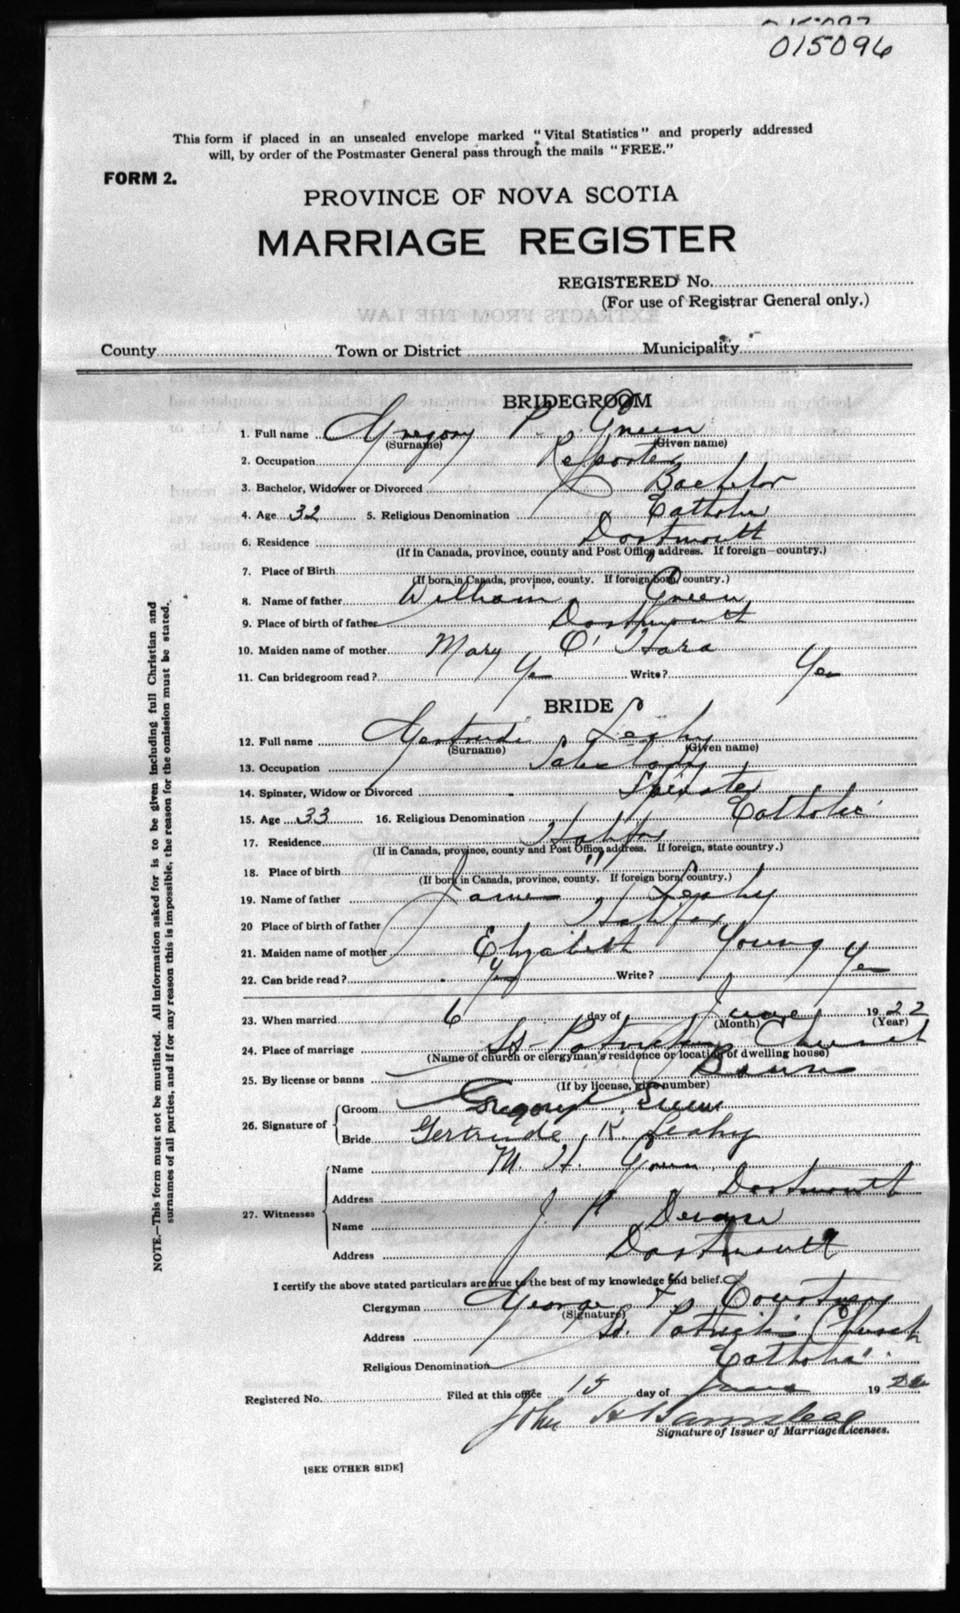 015097
015096
This form if placed in an unsealed envelope marked "Vital Statistics" and properly addressed
will, by order of the Postmaster General pass through the mails "FREE."
FORM 2.
PROVINCE OF NOVA SCOTIA
MARRIAGE REGISTER
REGISTERED No.
(For use of Registrar General only.)
EXTRACTS FROM THE LAW
County Town or District Municipality
BRIDEGROOM
1. Full name Gregory P. Green
(Surname) (Given name)
2. Occupation Reporter
3. Bachelor, Widower or Divorced Bachelor
4. Age 32 5. Religious Denomination Catholic
6. Residence Dartmouth
(If in Canada, province, county and Post Office address. If foreign—country.)
7. Place of Birth
(If born in Canada, province, county. If foreign born, country.)
8. Name of father William Green
9. Place of birth of father Dartmouth
10. Maiden name of mother Mary O'Hara
11. Can bridegroom read? Yes Write? Yes
BRIDE
12. Full name Gertrude Leahy
(Surname) (Given name)
13. Occupation Saleslady
14. Spinster, Widow or Divorced Spinster
15. Age 33 16. Religious Denomination Catholic
17. Residence Halifax
(If in Canada, province, county and Post Office address. If foreign, state country.)
18. Place of birth "
(If born in Canada, province, county. If foreign born, country.)
19. Name of father James Leahy
20 Place of birth of father Halifax
21. Maiden name of mother Elizabeth Young
22. Can bride read? Yes Write? Yes
23. When married 6 day of June 1922
(Month) (Year)
24. Place of marriage St. Patrick's Church
(Name of church or clergyman's residence or location of dwelling house)
25. By license or banns Banns
(If by license, give number)
26. Signature of Groom Gregory P. Green
Bride Gertrude K. Leahy
27. Witnesses Name M. H. Green
Address Dartmouth
Name J. P. Devan
Address Dartmouth
I certify the above stated particulars are true to the best of my knowledge and belief.
Clergyman George F. Courtney
(Signature)
Address St. Patrick's Church
Religious Denomination Catholic
Registered No. Filed at this office 15 day of June 1922
John H Barnstead
Signature of Issuer of Marriage Licenses.
[SEE OTHER SIDE]
NOTE.—This form must not be mutilated. All information asked for is to be given including full Christian and
surnames of all parties, and if for any reason this is impossible, the reason for the omission must be stated.